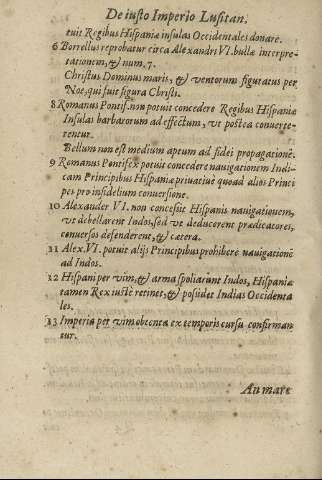 De iusto Imperio Lusitan.
tuit Regibus Hispaniæ insulas Occidentales donare.
6 Borrellus reprobatur circa Alexandri VI. bullæ interpre-
tationem, & num. 7.
Christus Dominus maris, & ventorum figuratus per
Noe, qui fuit figura Christi.
8 Romanus Pontif. non potuit concedere Regibus Hispaniæ
Insulas barbarorum ad effectum, vt postea conuerte-
rentur.
Bellum non est medium aptum ad fidei propagationē.
9 Romanus Pontifex potuit concedere nauigationem Indi-
cam Principibus Hispaniæ priuatiuè quoad alios Princi
pes pro infidelium conuersione.
10 Alexander VI. non concessit Hispanis nauigationem,
vt debellarent Indos, sed vt deducerent prædicatores,
conuersos defenderent, & cætera.
11 Alex. VI. potuit alijs Principibus prohibere nauigationē
ad Indos.
12 Hispani per vim, & arma spoliarunt Indos, Hispaniæ
tamen Rex iustè retinet, & possidet Indias Occidenta
les.
13 Imperia per vim obtenta ex temporis cursu confirman
tur.
An mare